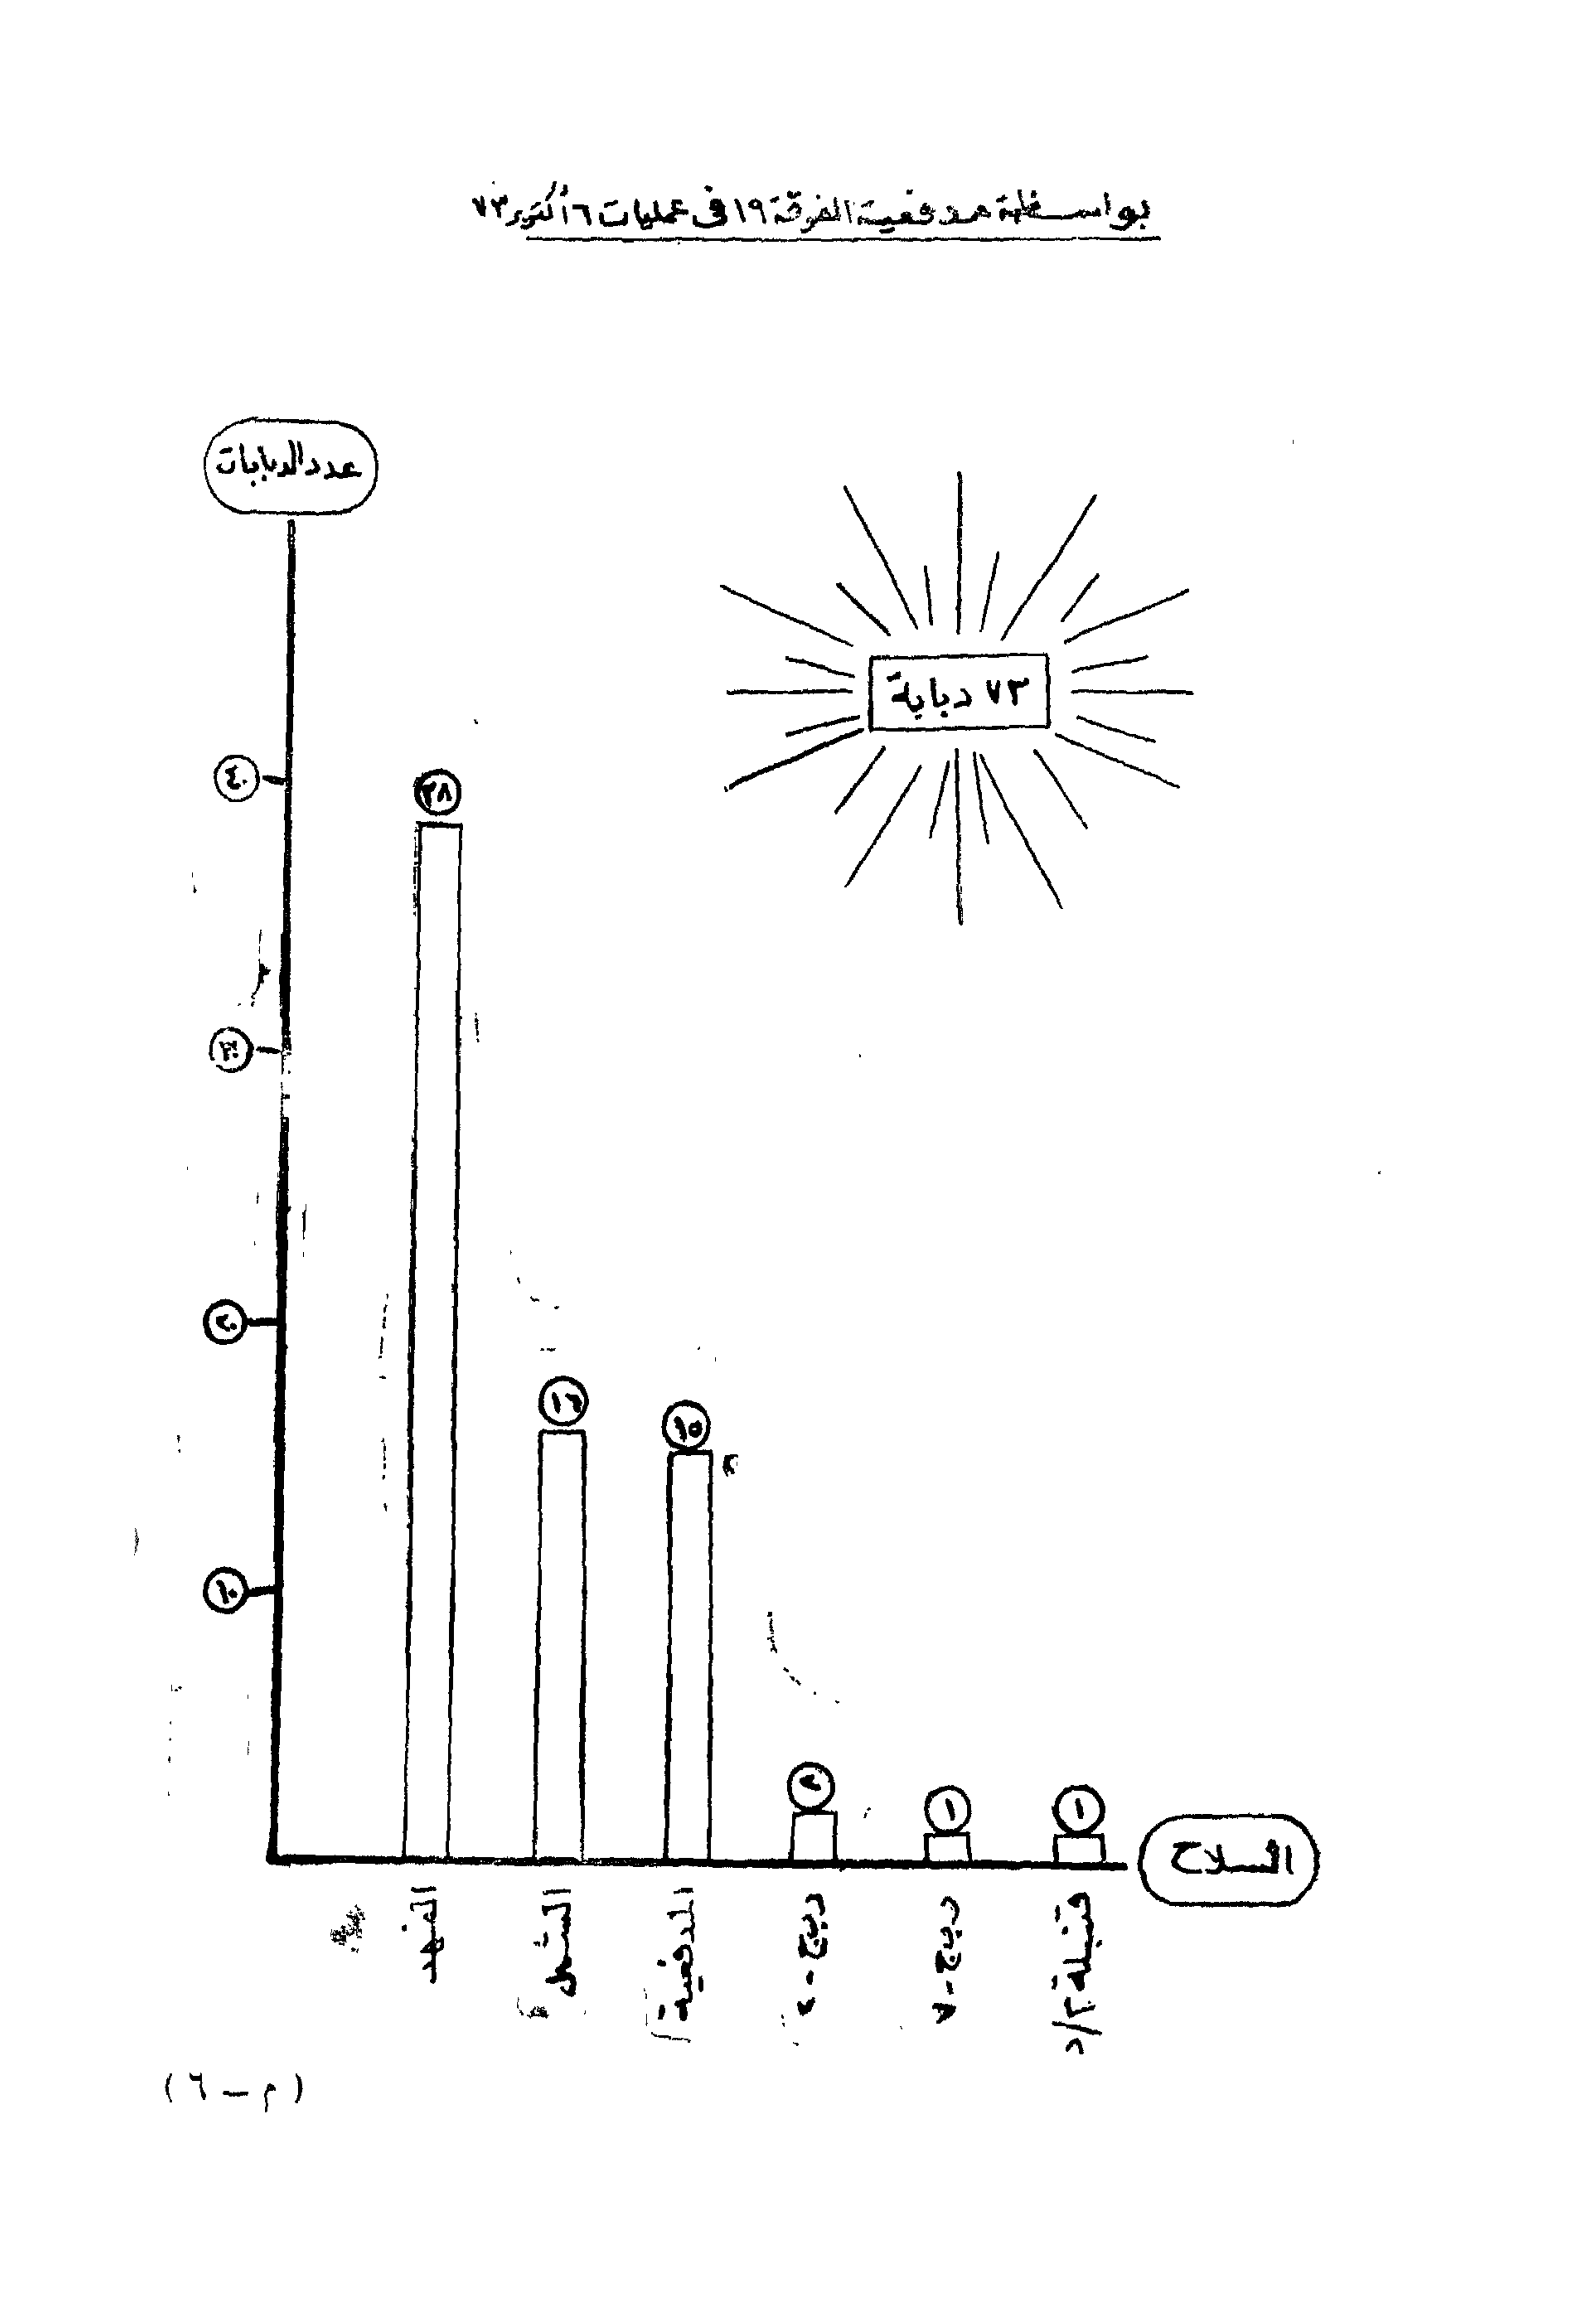 بواسطة مدفعية الفرقة ١٩ فى عمليات ٦ أكتوبر ٧٣
عدد الدبابات
٧٣ دبابة
٤٠
٣٨
٣٠
٢٠
١٦
١٥
١٠
٢
١
١
السلاح
الفهد
المدفعية
ر ب ج - ٢
ر ب ج - ٧
قنبلة م/د
(م – ٦)